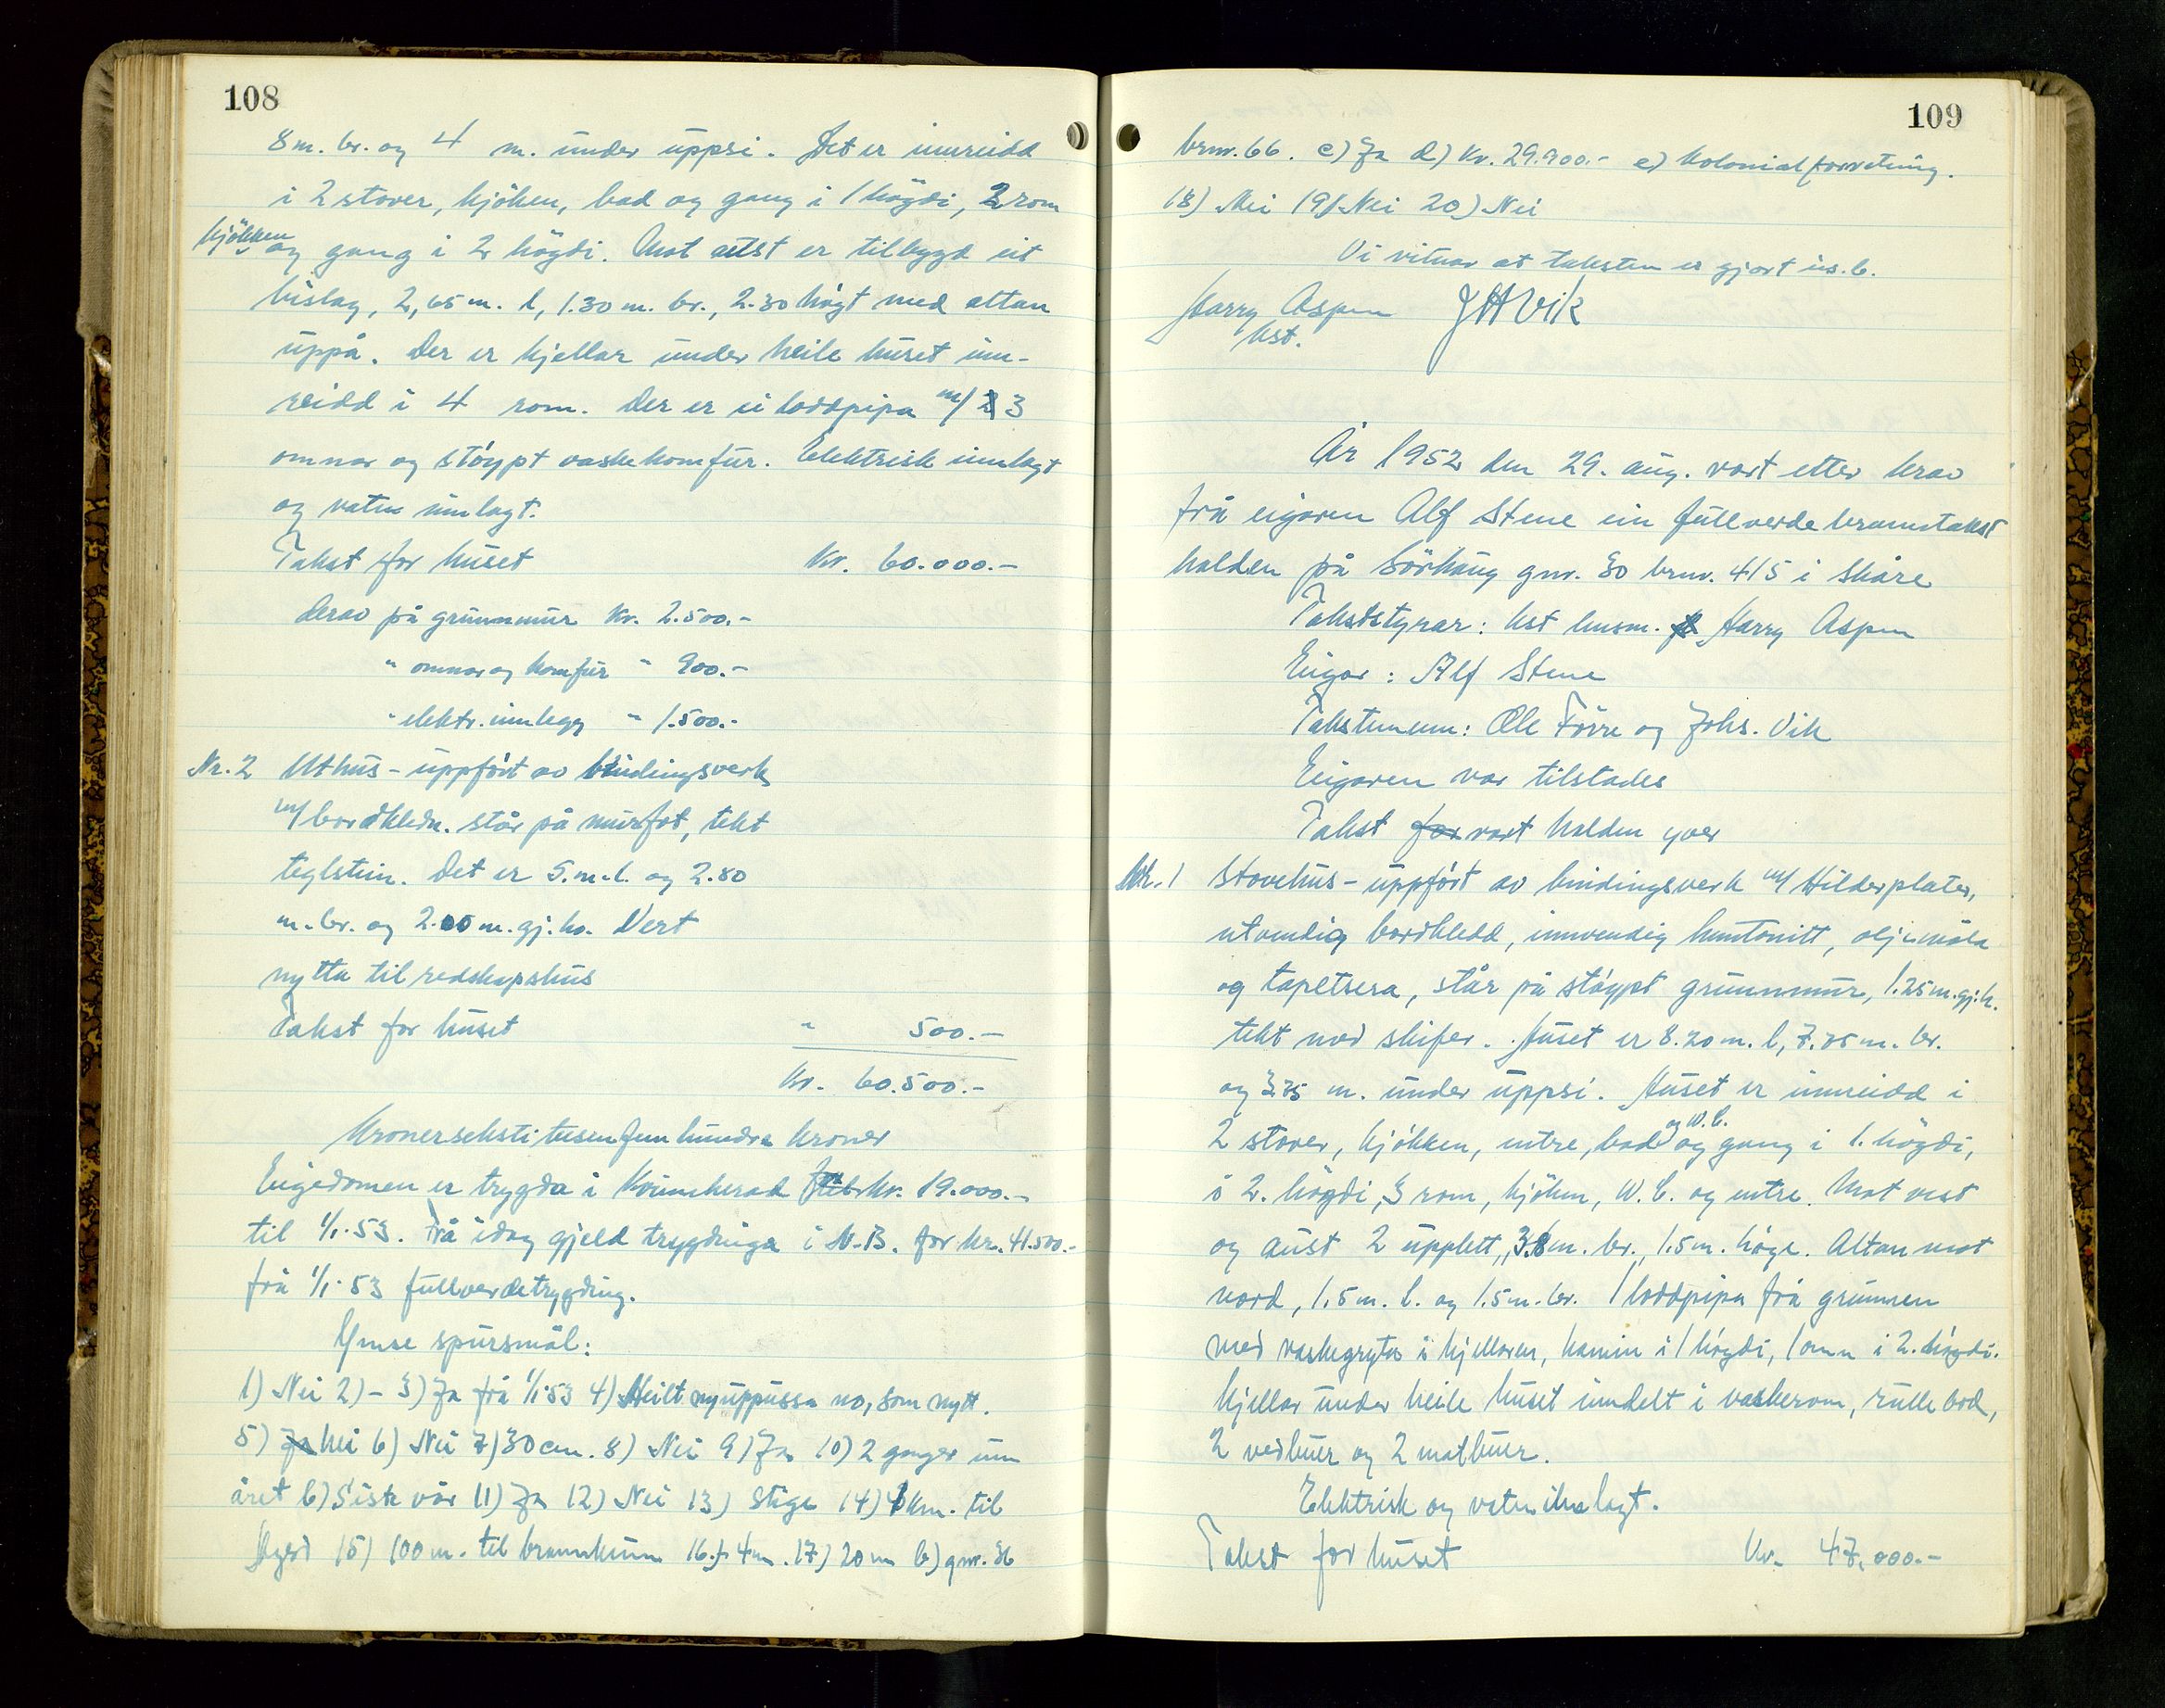 108
8 m. br. og 4 m. under uppsi. Det er innreidd
i 2 stover, kjöken, bad og gang i 1 högdi, 2 rom
kjökken
og gang i 2 högdi. Mot aust er tilbygd eit
bislag, 2,65 m. l, 1.30 m. br., 2.30 högt med altan
uppå. Der er kjellar under heile huset inn-
reidd i 4 rom. Der er ei loddpipa m/ 2 3
omnar og stöypt vaskekomfur. Elektrisk innlagt
og vatn innlagt.
Takst for huset kr. 60.000.-
Derav på grunnmur kr. 2.500.-
" omnar og komfur " 900.-
" elektr. innlegg " 1.500.-
Nr. 2 Uthus - uppfört av bindingsverk
m/bordkledn. står på murfot, tekt
teglstein. Det er 5. m. l. og 2.80
m. br. og 2.00 m. gj. h. Vert
nytta til redskapshus
Takst for huset " 500.-
Kr. 60.500.-
Kroner seksti tusen fem hundra kroner
Eigedomen er trygda i Kvinnherad for kr. 19.000.-
til 1/1-53. Frå idag gjeld trygdinga i N.B. for kr. 41.500.-
frå 1/1-53 fullverdetrygding.
Ymse spursmål:
1) Nei 2) - 3) Ja frå 1/1-53 4) Heilt nyuppussa no, som nytt.
5) Ja Nei 6) Nei 7) 30 cm. 8) Nei 9) Ja 10) 2 ganger um
året b) Siste vår 11) Ja 12) Nei 13) Stige 14) 1 km. til
15) 100 m. til brannkum 16.) 4 m. 17) 20 m b) gnr. 36
109
brnr. 66. c) Ja d) kr. 29.900.- e) Kolonialforretning.
18) Nei 19) Nei 20) Nei
Vi vitnar at taksten er gjort i.s.b.
Harry Aspen JHVik
kst.
År 1952 den 29. aug. vart etter krav
frå eigaren Alf Stene ein fullverde branntakst
halden på Sörhaug gnr. 30 brnr. 415 i Skåre
Takststyrar: kst lensm. Harry Aspen
Eigar: Alf Stene
Takstmenn: Ole Förre og Johs. Vik
Eigaren var tilstades
Takst for vart halden yver
Nr. 1 Stovehus - uppfört av bindingsverk m/ Hilderplater,
utvendig bordkledd, innvendig huntonitt, oljemåla
og tapetsera, står på stöypt grunnmur, 1.25 m. gj.h.
tekt med skifer. Huset er 8.20 m. l, 7.75 m. br.
og 3.75 m. under uppsi. Huset er innreidd i
og W.C.
2 stover, kjökken, entre, bad og gang i 1. högdi,
i 2. högdi, 3 rom, kjöken, W.C. og entre. Mot vest
og aust 2 upplett, 3.8 m. br., 1.5 m. höge. Altan mot
nord, 1.5 m. l. og 1.5 m. br. 1 loddpipa frå grunnen
med vaskegryta i kjellaren, kamin i 1 högdi, 1 omn i 2. högdi.
Kjellar under heile huset inndelt i vaskerom, rullebod,
2 vedbuer og 2 matbuer.
Elektrisk og vatn innlagt.
Takst for huset kr. 47.000.-